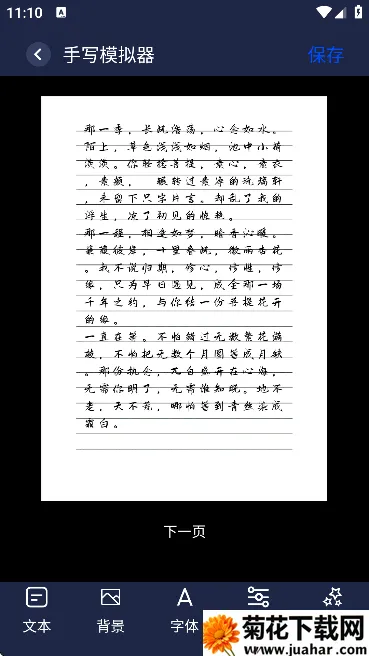 11:10
手写模拟器
保存
那一季，长风浩荡，心念如水。
陌上，草色浅浅如烟，池中小荷
淡淡。你轻挽菩提，素心，素衣
，素颜，　辗转过素净的流端轩
，未留下只字片言。却乱了我的
浮生，凉了初见的惊艳。
那一程，相逢如梦，暗香沁暖。
蒹葭彼岸，十里春风，微雨杏花
。我不说归期，修心，修性，修
缘，只为早日遇见，成全那一场
千年之约，与你结一份菩提花开
的缘。
一直在等。不怕错过无数繁花满
枝，不怕把无数个月圆等成月缺
。那份执念，兀自盛开在心海，
无需你明了，无需谁知晓。地不
老，天不荒，哪怕等到青丝染成
霜白。
下一页
文本
背景
字体
菊花下载网
www.juahar.com